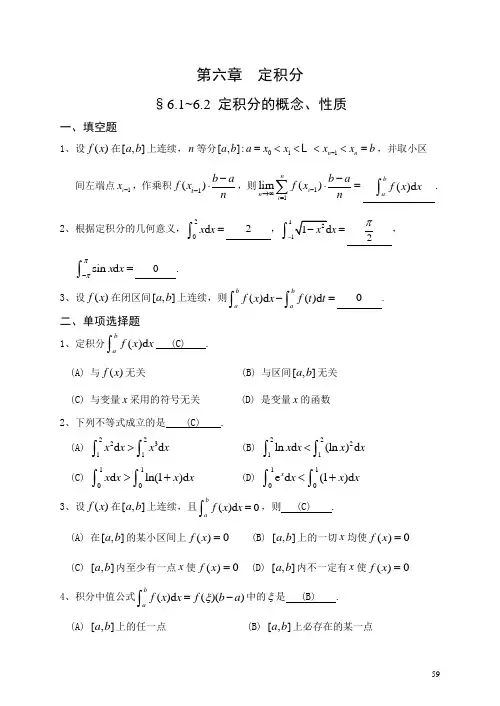 第六章 定积分
§6.1~6.2 定积分的概念、性质
一、填空题
1、设 f(x) 在[a,b]上连续，n 等分[a,b]: a = x₀ < x₁ < L < xₙ₋₁ < xₙ = b，并取小区
间左端点 xᵢ₋₁，作乘积 f(xᵢ₋₁)·(b−a)/n，则 lim_{n→∞} ∑_{i=1}^{n} f(xᵢ₋₁)·(b−a)/n = ∫_a^b f(x)dx .
2、根据定积分的几何意义，∫_0^2 xdx = 2 ，∫_{-1}^1 √(1−x²)dx = π/2 ，
∫_{-π}^{π} sin xdx = 0 .
3、设 f(x) 在闭区间[a,b]上连续，则∫_a^b f(x)dx − ∫_a^b f(t)dt = 0 .
二、单项选择题
1、定积分∫_a^b f(x)dx (C) .
(A) 与 f(x) 无关 (B) 与区间[a,b]无关
(C) 与变量 x 采用的符号无关 (D) 是变量 x 的函数
2、下列不等式成立的是 (C) .
(A) ∫_1^2 x²dx > ∫_1^2 x³dx (B) ∫_1^2 ln xdx < ∫_1^2 (ln x)²dx
(C) ∫_0^1 xdx > ∫_0^1 ln(1+x)dx (D) ∫_0^1 eˣdx < ∫_0^1 (1+x)dx
3、设 f(x) 在[a,b]上连续，且∫_a^b f(x)dx = 0，则 (C) .
(A) 在[a,b]的某小区间上 f(x) = 0 (B) [a,b]上的一切 x 均使 f(x) = 0
(C) [a,b]内至少有一点 x 使 f(x) = 0 (D) [a,b]内不一定有 x 使 f(x) = 0
4、积分中值公式∫_a^b f(x)dx = f(ξ)(b−a)中的 ξ 是 (B) .
(A) [a,b]上的任一点 (B) [a,b]上必存在的某一点
59